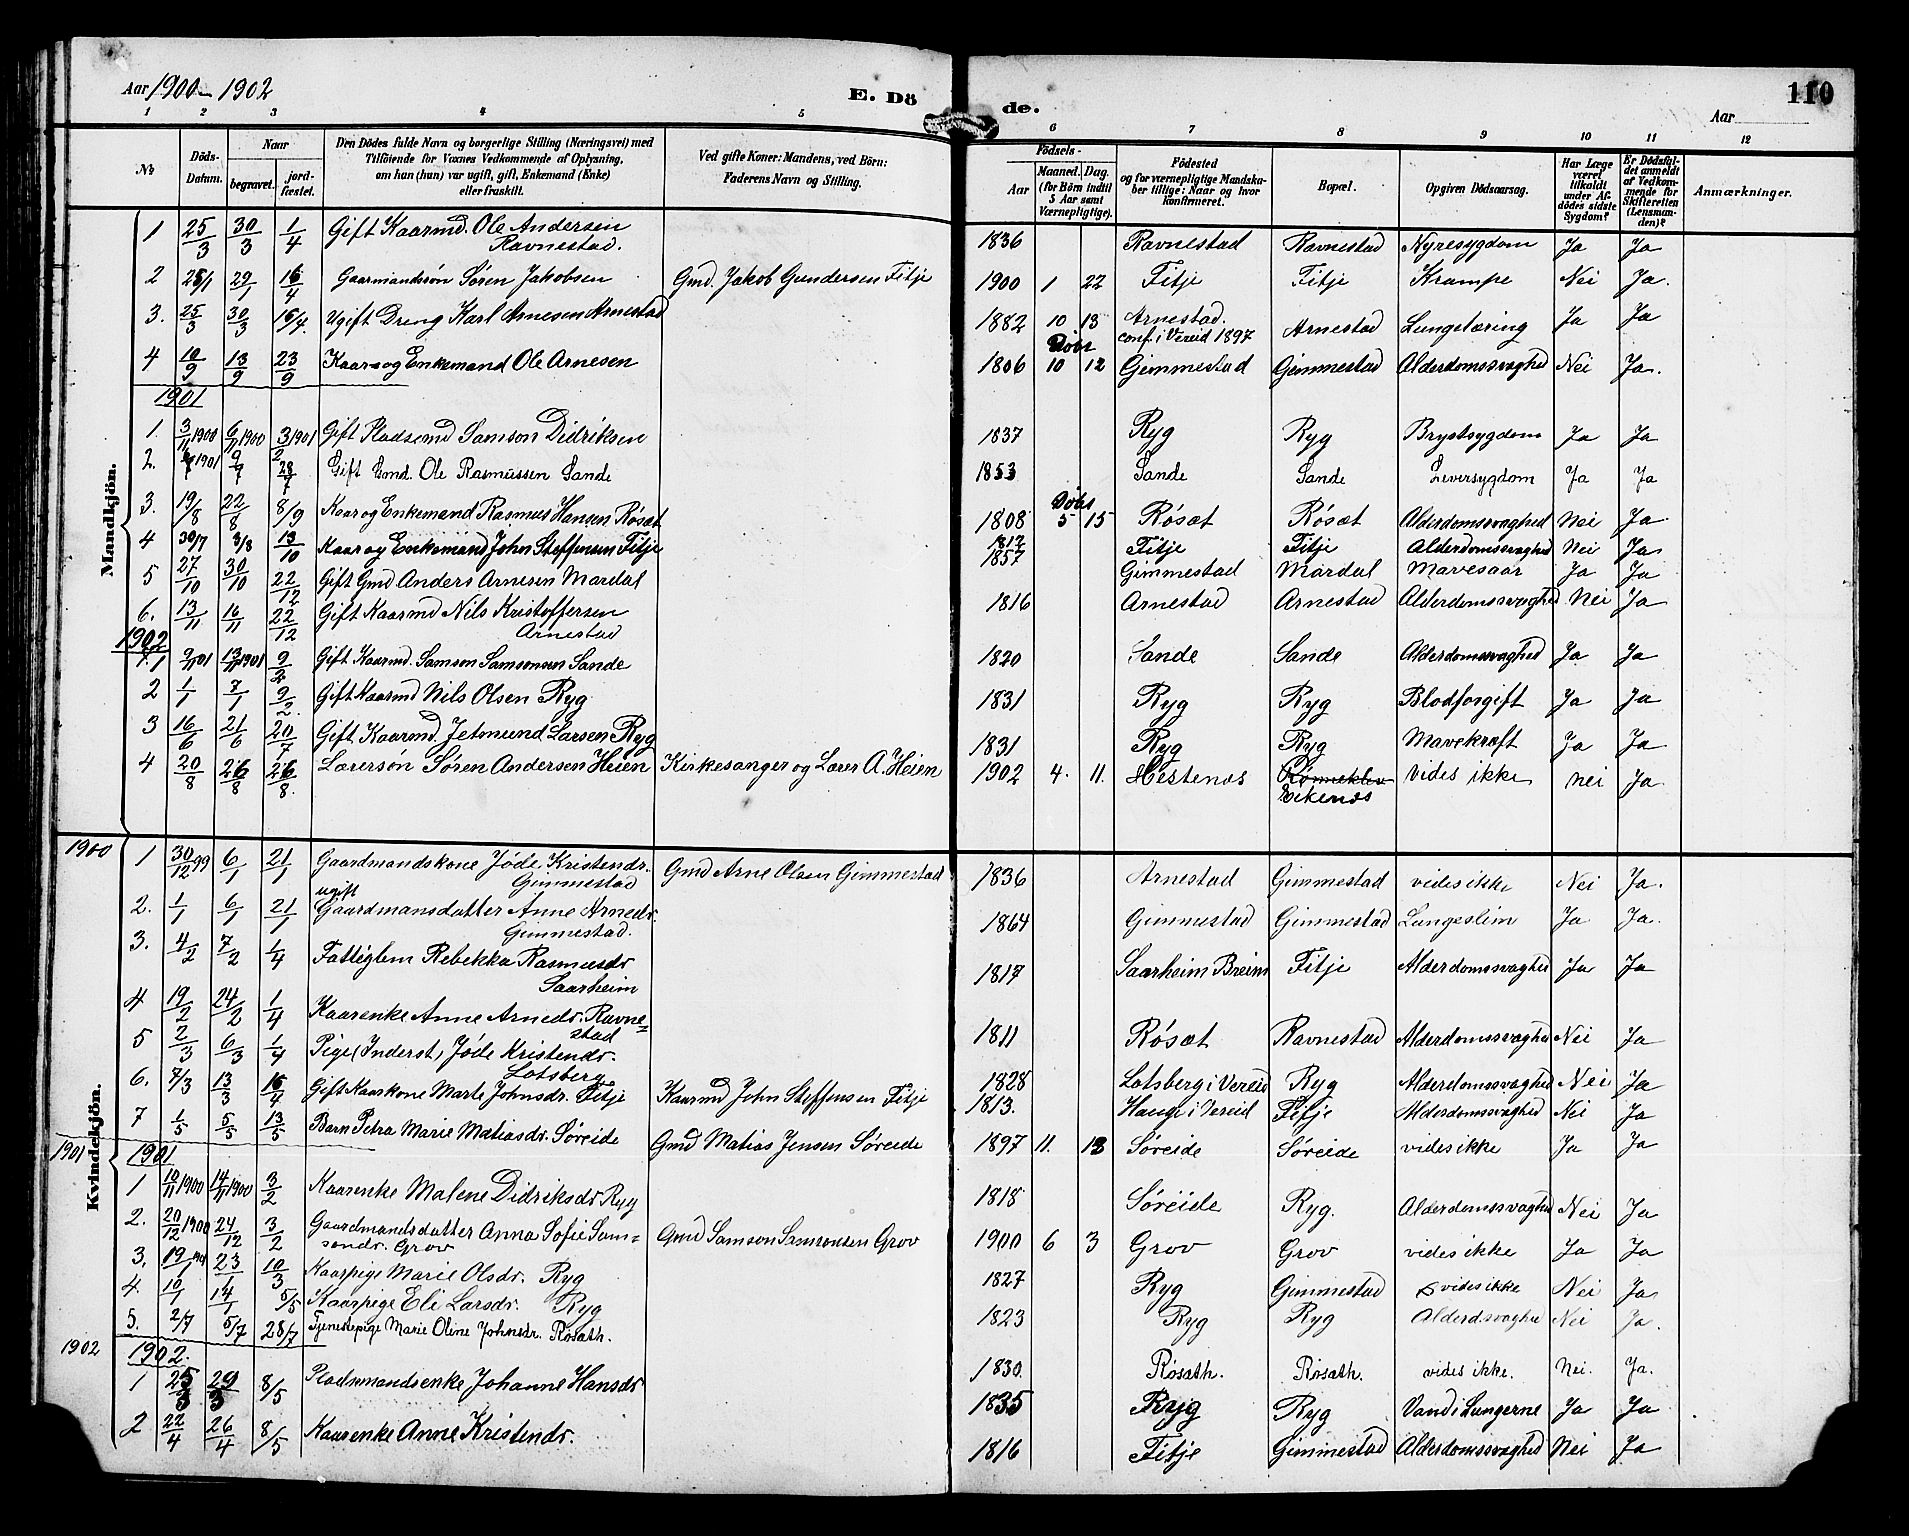 Aar 1900-1902 E. Dö de. Aar 110
1 2 3 4 5 6 7 8 9 10 11 12
№ Döds-Datum. Naar begravet. jordfæstet. Den Dödes fulde Navn og borgerlige Stilling (Næringsvei) med Tilföiende for Voxnes Vedkommende af Oplysning, om han (hun) var ugift, gift, Enkemand (Enke) eller fraskilt. Ved gifte Koner: Mandens, ved Börn: Faderens Navn og Stilling. Födsels- Aar Maaned. Dag. (for Börn indtil 5 Aar samt Værnepligtige). Födested og for værnepligtige Mandskaber tillige: Naar og hvor konfirmeret. Bopæl. Opgiven Dödsaarsag. Har Læge været tilkaldt under Afdödes sidste Sygdom? Er Dödsfaldet anmeldt af Vedkommende for Skifteretten (Lensmanden)? Anmærkninger.
Mandkjön.
1 25/3 30/3 1/4 Gift Kaarmd. Ole Andersen Ravnestad. 1836 Ravnestad Ravnestad Nyresygdom Ja Ja
2 25/1 29/1 16/4 Gaarmandsön Sören Jakobsen Gmd. Jakob Gundersen Fitje 1900 1 22 Fitje Fitje Krampe Nei Ja.
3. 25/3 30/3 16/4. Ugift Dreng Karl Arnesen Arnestad 1882 10 13 Arnestad. conf. i Vereid 1897 Arnestad Lungetæring Ja Ja
4 10/9 13/9 23/9 Kaar og Enkemand Ole Arnesen 1806 Döbt 10 12 Gimmestad Gimmestad Alderdomssvaghed Nei Ja.
1901
1. 3/11 1900 6/11 1900 3/2 1901 Gift Pladsemd Samson Didriksen 1837 Ryg Ryg Brystsygdom Ja Ja
2. 1901 9/7 28/7 Gift Gmd. Ole Rasmussen Sande 1853 Sande Sande Leversygdom Ja Ja
3. 19/8 22/8 8/9 Kaar og Enkemand Rasmus Hansen Rösæt 1808 Döbt 5 15 Rösæt Rösæt Alderdomssvaghed Nei Ja
4 30/7 3/8 13/10 Kaar og Enkemand John Steffensen Fitje 1812 Fitje Fitje Alderdomssvaghed Nei Ja
5 27/10 30/10 22/12 Gift Gmd Anders Arnesen Mardal 1857 Gimmestad Mardal Mavesaar Ja Ja
6. 13/11 16/11 22/12 Gift Kaarmd Nils Kristoffersen Arnestad 1816 Arnestad Arnestad Alderdomssvaghed Nei Ja
1902
1 9/11 01 13/11 1901 9/2 Gift Kaarmd. Samson Samsonsen Sande 1820 Sande Sande Alderdomssvaghed Ja Ja
2 1/1 7/1 9/2. Gift Kaarmd Nils Olsen Ryg 1831 Ryg Ryg Blodforgift Ja Ja
3 16/6 21/6 20/7 Gift Kaarmd. Jetmund Larsen Ryg 1831 Ryg Ryg Mavekræft Ja Ja
4 20/8 26/8 26/8. Lærersön Sören Andersen Heien Kirkesanger og Lærer A. Heien 1902 4. 11. Hestenæs Rönneklev Eikenæs vides ikke nei Ja
Kvindekjön.
1900
1 30/12 99 6/1 21/1 Gaardmandskone Jöde Kristendr. Gimmestad Gmd Arne Olsen Gimmestad 1836 Arnestad Gimmestad vides ikke Nei Ja.
2. 1/1 6/1 21/1 ugift Gaardmansdatter Anne Arnedr. Gimmestad. 1864 Gimmestad Gimmestad Lungeslim Ja Ja.
3. 4/2 7/2 1/4 Fattiglem Rebekka Rasmusdr Saarheim 1817 Saarheim Breim Fitje Alderdomssvaghed Ja Ja
4 19/2 24/2 1/4 Kaarenke Anne Arnedr. Ravne=stad 1811 Rösæt Ravnestad Alderdomssvaghed Nei Ja
5 2/3 6/3 1/4 Pige (Inderst) Jöde Kristendr. Lotsberg 1828 Lotsberg i Vereid Ryg Alderdomssvaghed Nei Ja
6. 7/3 13/3 16/4 Gift Kaarkone Marte Johnsdr. Fitje Kaarmd John Steffensen Fitje 1813. Hauge i Vereid Fitje Alderdomssvaghed Nei Ja
7 1/5 5/5 13/5 Barn Petra Marie Matiasdr. Söreide Gmd Matias Jensen Söreide 1897 11. 13 Söreide Söreide vides ikke Ja Ja
1901 1901
1 10/11 1900 14/11 1900 3/2 Kaarenke Malene Didriksdr Ryg 1818 Söreide Ryg. Alderdomssvaghed Nei Ja
2. 20/12 1900 24/12 3/2 Gaardmandsdatter Anna Sofie Sam=sondr. Grov Gmd Samson Samsonsen Grov 1900 6 3 Grov Grov vides ikke Ja Ja
3. 19/1 1901 23/1 10/3 Kaarpige Marie Olsdr. Ryg 1827 Ryg Gimmestad vides ikke Nei Ja
4. 10/1 14/1 5/5 Kaarpige Eli Larsdr. Ryg 1823 Ryg Ryg Alderd.svaghed Nei Ja.
5. 2/7 5/7 28/7 Tjenestepige Marie Oline Johnsdr. Rösæth. 1830. Rösæth. Rösæth. vides ikke. Nei. Ja.
1902 1902.
1 25/3 29/3 8/5 Pladsmandsenke Johanne Hansdr 1835 Ryg Ryg Vand i Lungerne Ja Ja
2 22/4 26/4 8/5 Kaarenke Anne Kristendr. 1816 Fitje Gimmestad Alderdomssvaghed Nei Ja